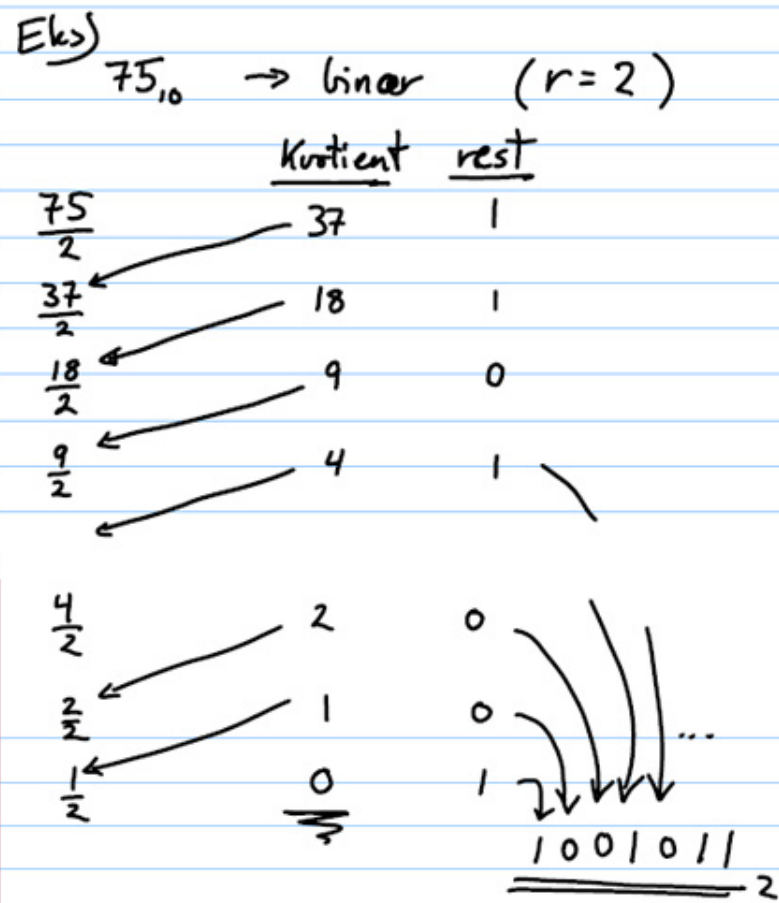 Eks)
75₁₀ → binær (r = 2)
Kvotient rest
75/2 37 1
37/2 18 1
18/2 9 0
9/2 4 1
4/2 2 0
2/2 1 0
1/2 0 1
...
1001011₂